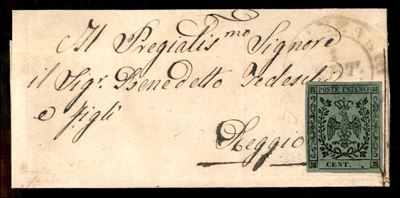 Il Pregiatis.mo Signore
il Sig.r Benedetto Tedeschi
e figli
Reggio
POSTE ESTENSI
CENT.